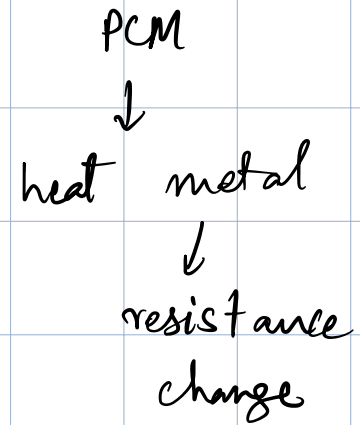 PCM
↓
heat metal
↓
resistance
change